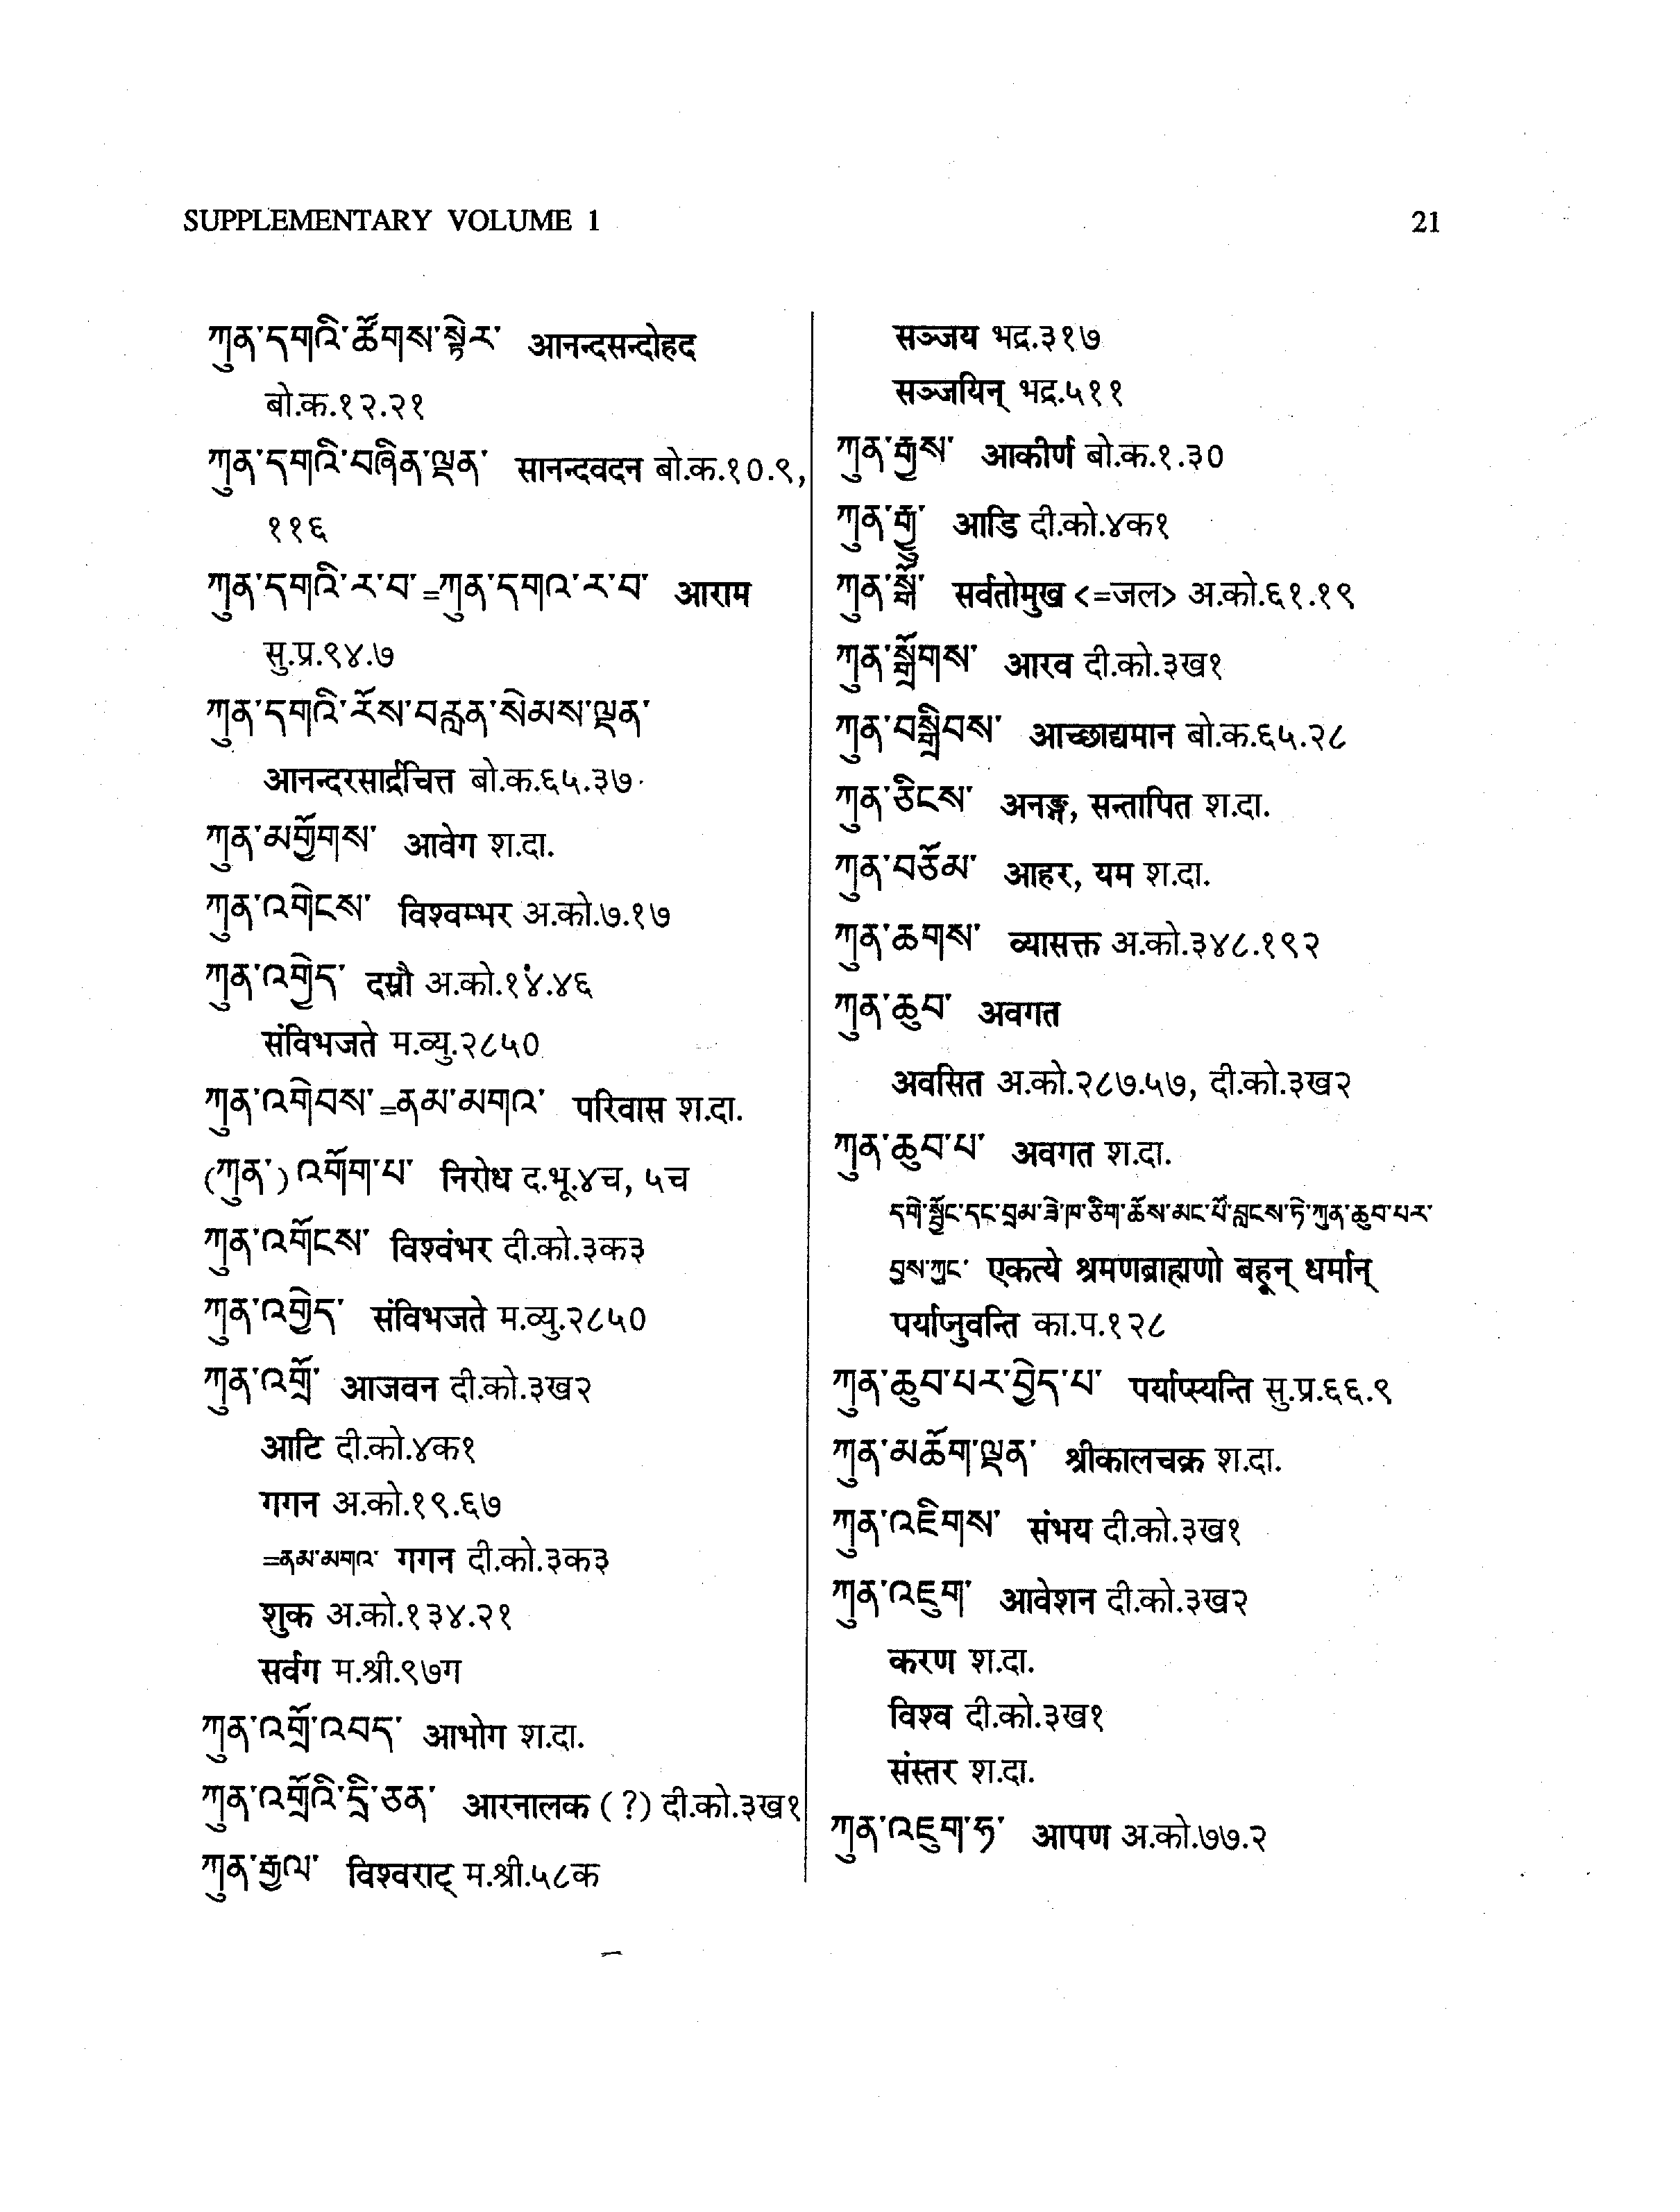 SUPPLEMENTARY VOLUME 1
21
ཀུན་དགའི་ཚོགས་སྟེར་ आनन्दसन्दोहद
बो.क.१२.२१
ཀུན་དགའི་བཞིན་ལྡན་ सानन्दवदन बो.क.१०.९,
११६
ཀུན་དགའི་ར་བ་=ཀུན་དགའ་ར་བ་ आराम
सु.प्र.९४.७
ཀུན་དགའི་རོས་བརླན་སེམས་ལྡན་
आनन्दरसार्द्रचित्त बो.क.६५.३७
ཀུན་མགྱོགས་ आवेग श.दा.
ཀུན་འགེངས་ विश्वम्भर अ.को.७.१७
ཀུན་འགྱེད་ दस्रौ अ.को.१४.४६
संविभजते म.व्यु.२८५०
ཀུན་འགེབས་=ནམ་མགའ་ परिवास श.दा.
(ཀུན་)འགོག་པ་ निरोध द.भू.४च, ५च
ཀུན་འགོངས་ विश्वंभर दी.को.३क३
ཀུན་འགྱེད་ संविभजते म.व्यु.२८५०
ཀུན་འགྲོ་ आजवन दी.को.३ख२
आटि दी.को.४क१
गगन अ.को.१९.६७
=ནམ་མགའ་ गगन दी.को.३क३
शुक अ.को.१३४.२१
सर्वग म.श्री.९७ग
ཀུན་འགྲོ་འབད་ आभोग श.दा.
ཀུན་འགྲོའི་དྲི་ཅན་ आरनालक (?) दी.को.३ख१
ཀུན་རྒྱལ་ विश्वराट् म.श्री.५८क
सञ्जय भद्र.३१७
सञ्जयिन् भद्र.५११
ཀུན་རྒྱས་ आकीर्ण बो.क.१.३०
ཀུན་རྒྱུ་ आडि दी.को.४क१
ཀུན་སྒོ་ सर्वतोमुख <=जल> अ.को.६१.१९
ཀུན་སྒྲོགས་ आरव दी.को.३ख१
ཀུན་བསྒྲིབས་ आच्छाद्यमान बो.क.६५.२८
ཀུན་ཅིངས་ अनङ्ग, सन्तापित श.दा.
ཀུན་བཅོམ་ आहर, यम श.दा.
ཀུན་ཆགས་ व्यासक्त अ.को.३४८.१९२
ཀུན་ཆུབ་ अवगत
अवसित अ.को.२८७.५७, दी.को.३ख२
ཀུན་ཆུབ་པ་ अवगत श.दा.
དགེ་སྦྱོང་དང་བྲམ་ཟེ་ཁ་ཅིག་ཆོས་མང་པོ་བླངས་ཏེ་ཀུན་ཆུབ་པར་
བྱས་ཀྱང་ एकत्ये श्रमणब्राह्मणो बहून् धर्मान्
पर्याप्नुवन्ति का.प.१२८
ཀུན་ཆུབ་པར་བྱེད་པ་ पर्याप्स्यन्ति सु.प्र.६६.९
ཀུན་མཆོག་ལྡན་ श्रीकालचक्र श.दा.
ཀུན་འཇིགས་ संभय दी.को.३ख१
ཀུན་འཇུག་ आवेशन दी.को.३ख२
करण श.दा.
विश्व दी.को.३ख१
संस्तर श.दा.
ཀུན་འཇུག་ཏ་ आपण अ.को.७७.२